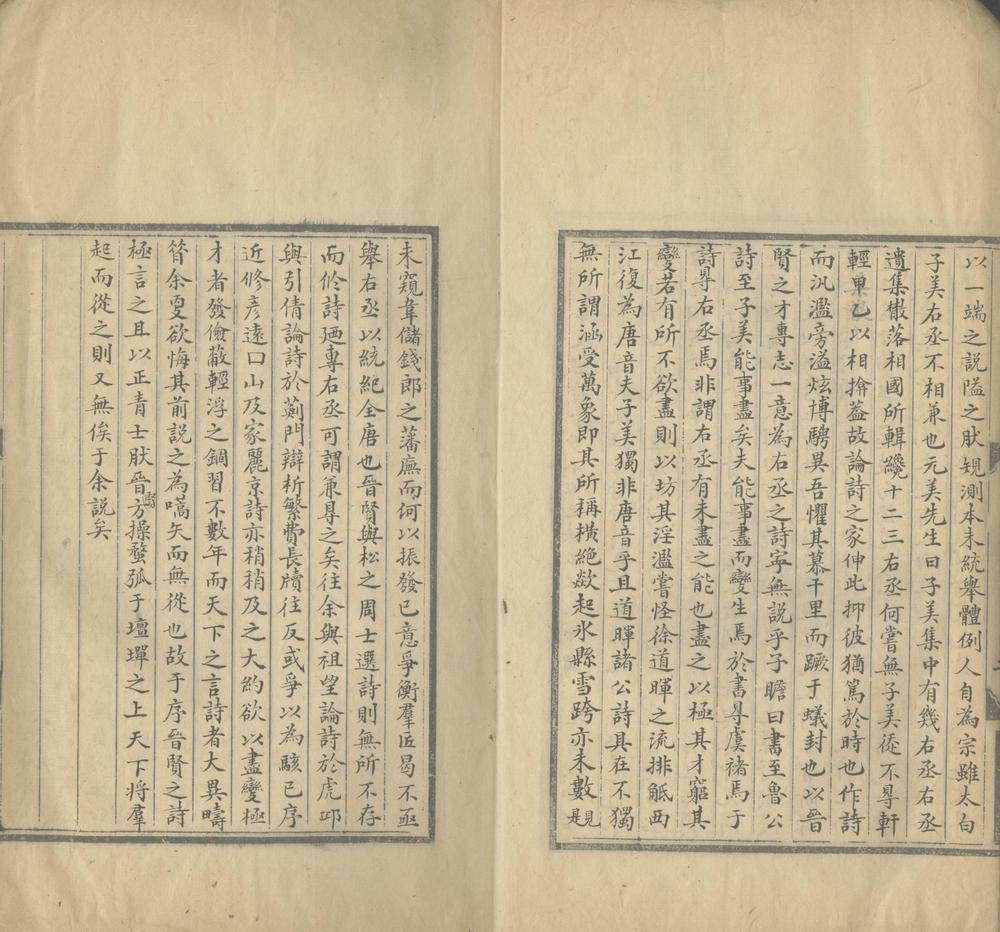 以一端之説隘之肰䂓測本末統舉體例人自為宗雖太白
子美右丞不相兼也元美先生曰子美集中有幾右丞右丞
遺集散落相國所輯纔十二三右丞何嘗無子美從不㝵軒
輕甲乙以相揜葢故論詩之家伸此抑彼猶篤於時也作詩
而汎濫旁溢炫博騁異吾懼其慕千里而蹶于蟻封也以晉
賢之才專志一意為右丞之詩寧無説乎子瞻曰書至魯公
詩至子美能事盡矣夫能事盡而變生焉於書㝵虞褚焉于
詩㝵右丞焉非謂右丞有未盡之能也盡之以極其才窮其
變若有所不欲盡則以坊其淫濫嘗怪徐道暉之流排觝西
江復為唐音夫子美獨非唐音乎且道暉諸公詩具在不獨
無所謂涵受萬象即其所稱橫絶欻起氷縣雪跨亦未數見是
未窺韋儲錢郎之藩廡而何以振發已意爭衡羣匠曷不亟
舉右丞以統紀全唐也晉賢與松之周士選詩則無所不存
而作詩廼專右丞可謂兼㝵之矣往余與祖望論詩於虎邱
與引倩論詩於薊門辯析繁費長牘往反或爭以為駭已序
近修彦遠口山及家麗京詩亦稍稍及之大約欲以盡變極
才者發儉蔽輕浮之錮習不數年而天下之言詩者大異疇
昝余更欲悔其前説之為嚆矢而無從也故于序晉賢之詩
極言之且以正青士肰晉賢方操蝥弧于壇墠之上天下將羣
起而從之則又無俟于余説矣